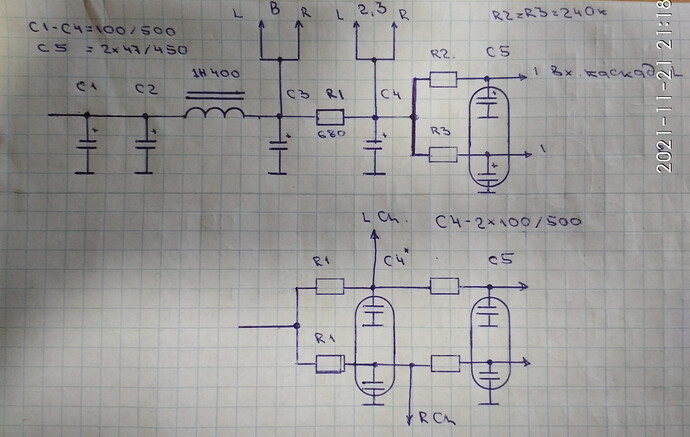 L B R
L 2,3 R
R2=R3=240к
C1-C4=100/500
C5 = 2x47/450
1H 400
C1
C2
C3
R1
680
C4
R2
C5
1 Вх. каскад L
R3
1
2021-11-21 21:18
L Ch.
C4-2x100/500
R1
C4*
C5
R1
R Ch